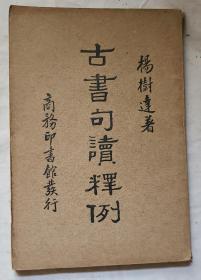 楊樹達著
古書句讀釋例
商務印書館發行